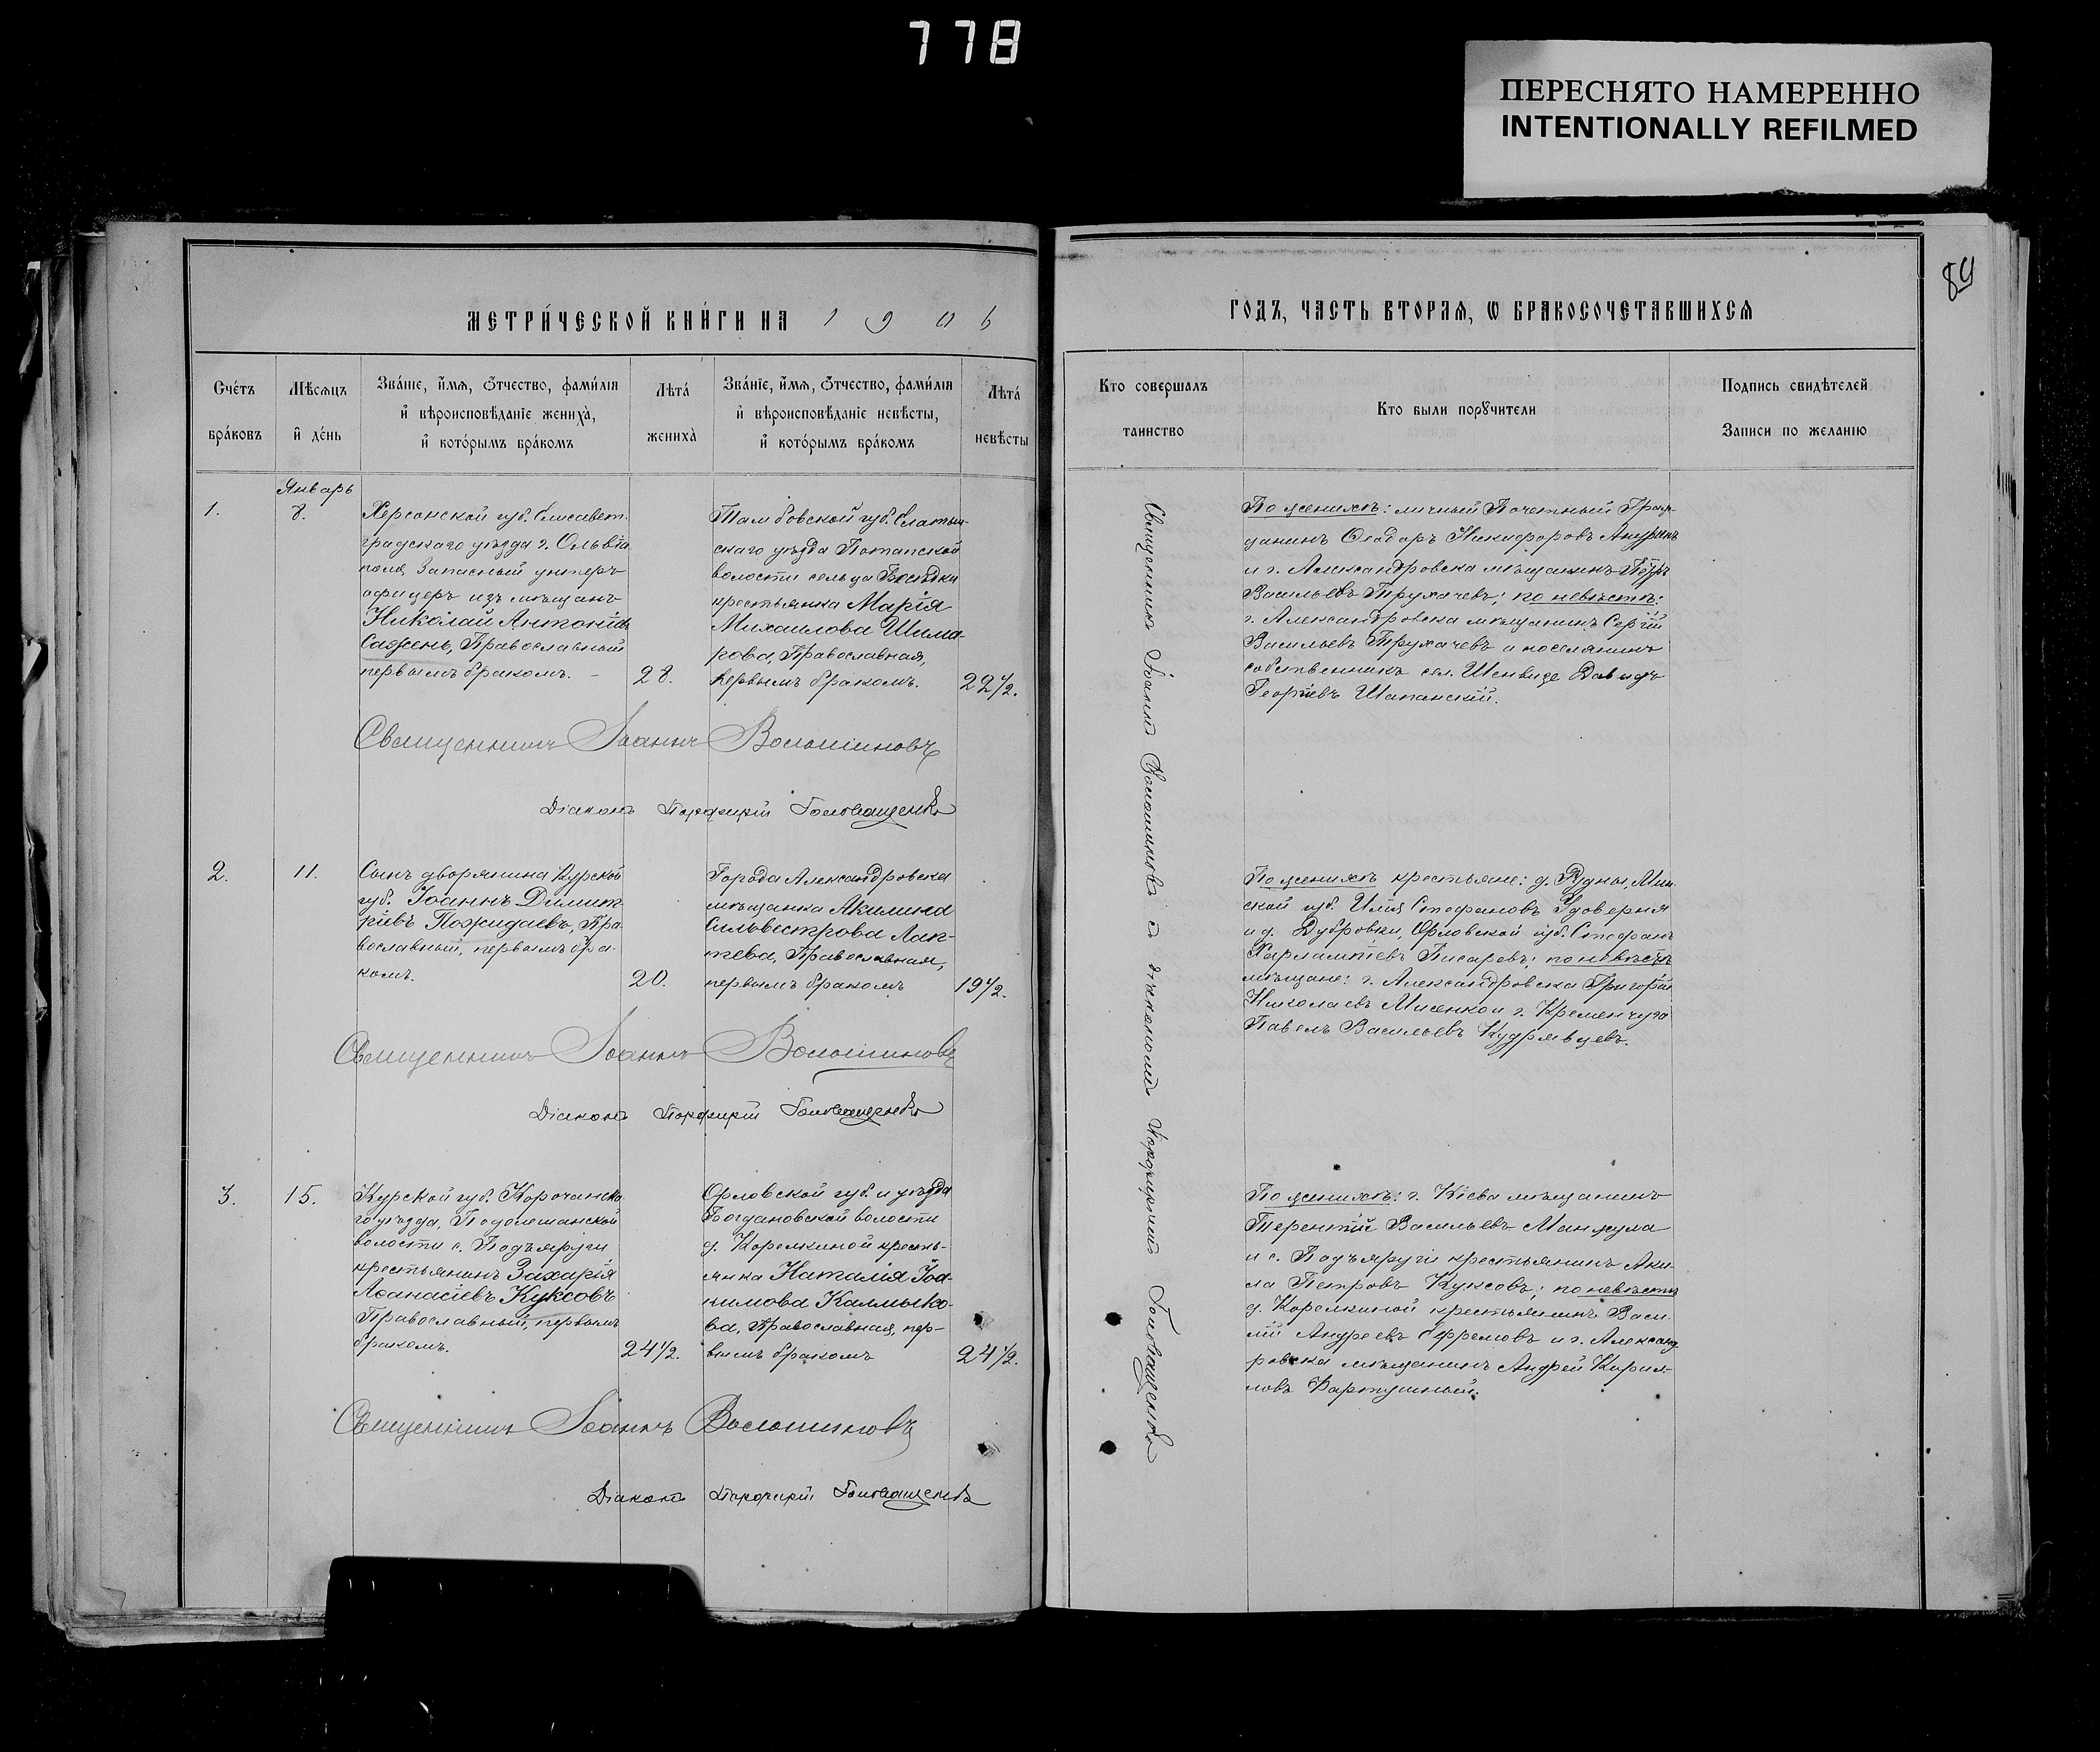 778
ПЕРЕСНЯТО НАМЕРЕННО
INTENTIONALLY REFILMED
84
МЕТРИ́ЧЕСКОЙ КНИ́ГИ НА 1906
ГОДЪ, ЧАСТЬ ВТОРАЯ, Ѡ БРАКОСОЧЕТАВШИХСЯ
Сче́тъ
бра́ковъ
Мѣ́сѧцъ
и҆ де́нь
Зва́нїе, и҆́мѧ, ѻ҆́тчество, фами́лїѧ
и҆ вѣроисповѣ́данїе жениха̀,
и҆ кото́рымъ бра́комъ
Лѣта́
жениха̀
Зва́нїе, и҆́мѧ, ѻ҆́тчество, фами́лїѧ
и҆ вѣроисповѣ́данїе невѣ́сты,
и҆ кото́рымъ бра́комъ
Лѣта́
невѣ́сты
Кто совершалъ
таинство
Кто были порꙋчители
Подпись свидѣтелей
Записи по желанію
Январь
1.
8.
Херсонской губ. Елисавет-
градскаго уѣзда г. Ольвіо-
поля, Запасный унтеръ
офицеръ изъ мѣщанъ
Николай Антоніевъ
Сажень, Православный
первымъ бракомъ.
28.
Тамбовской губ. Елатьм-
скаго уѣзда
волости сельца
крестьянка Марія
Михаилова Шама-
рова, Православная,
первымъ бракомъ.
22½.
По женихѣ: личный Почетный Граж-
данинъ Ѳеодоръ Никифоровъ
и г. Александровска мѣщанинъ Петръ
Васильевъ Трухачевъ; по невѣстѣ:
г. Александровска мѣщанинъ Сергій
Васильевъ Трухачевъ и поселянинъ
собственникъ сел. Шенвизе Давидъ
Георгіевъ Шапанскій.
Священникъ Іоаннъ Волошиновъ
Діаконъ Порфирій Головащенко
2.
11.
Сынъ дворянина Курской
губ. Іоаннъ Димит-
ріевъ Пожидаевъ, Пра-
вославный, первымъ бра-
комъ.
20.
Города Александровска
мѣщанка Акилина
Сильвестрова Лап-
тева, Православная,
первымъ бракомъ
19½.
По женихѣ крестьяне: д. Рудны, Мин-
ской губ. Илія Стефановъ Удоверня
и д. Дубровки, Орловской губ. Стефанъ
Харлампіевъ Писаревъ; по невѣстѣ
мѣщане: г. Александровска Григорій
Николаевъ Мисенко и г. Кременчуга
Павелъ Васильевъ Кудрявцевъ.
Священникъ Іоаннъ Волошиновъ
Діаконъ Порфирій Головащенко
3.
15.
Курской губ. Корочанска-
го уѣзда,
волости с. Подъяруги
крестьянинъ Захарія
Аѳанасіевъ Куксовъ
Православный, первымъ
бракомъ.
24½.
Орловской губ. и уѣзда
Богдановской волости
д. Корелкиной кресть-
янка Наталія Іоа-
кимова Калмыко-
ва, Православная, пер-
вымъ бракомъ
24½.
По женихѣ: г. Кіева мѣщанинъ
Терентій Васильевъ Манжула
и с. Подъяруги крестьянинъ Аки-
ла Петровъ Куксовъ; по невѣстѣ
д. Корелкиной крестьянинъ Васи-
лій Андреевъ Ефремовъ и г. Александ-
ровска мѣщанинъ Андрей Кирил-
ловъ Фартушный.
Священникъ Іоаннъ Волошиновъ
Діаконъ Порфирій Головащенко
Священникъ Іоаннъ Волошиновъ съ діакономъ Порфиріемъ Головащенко